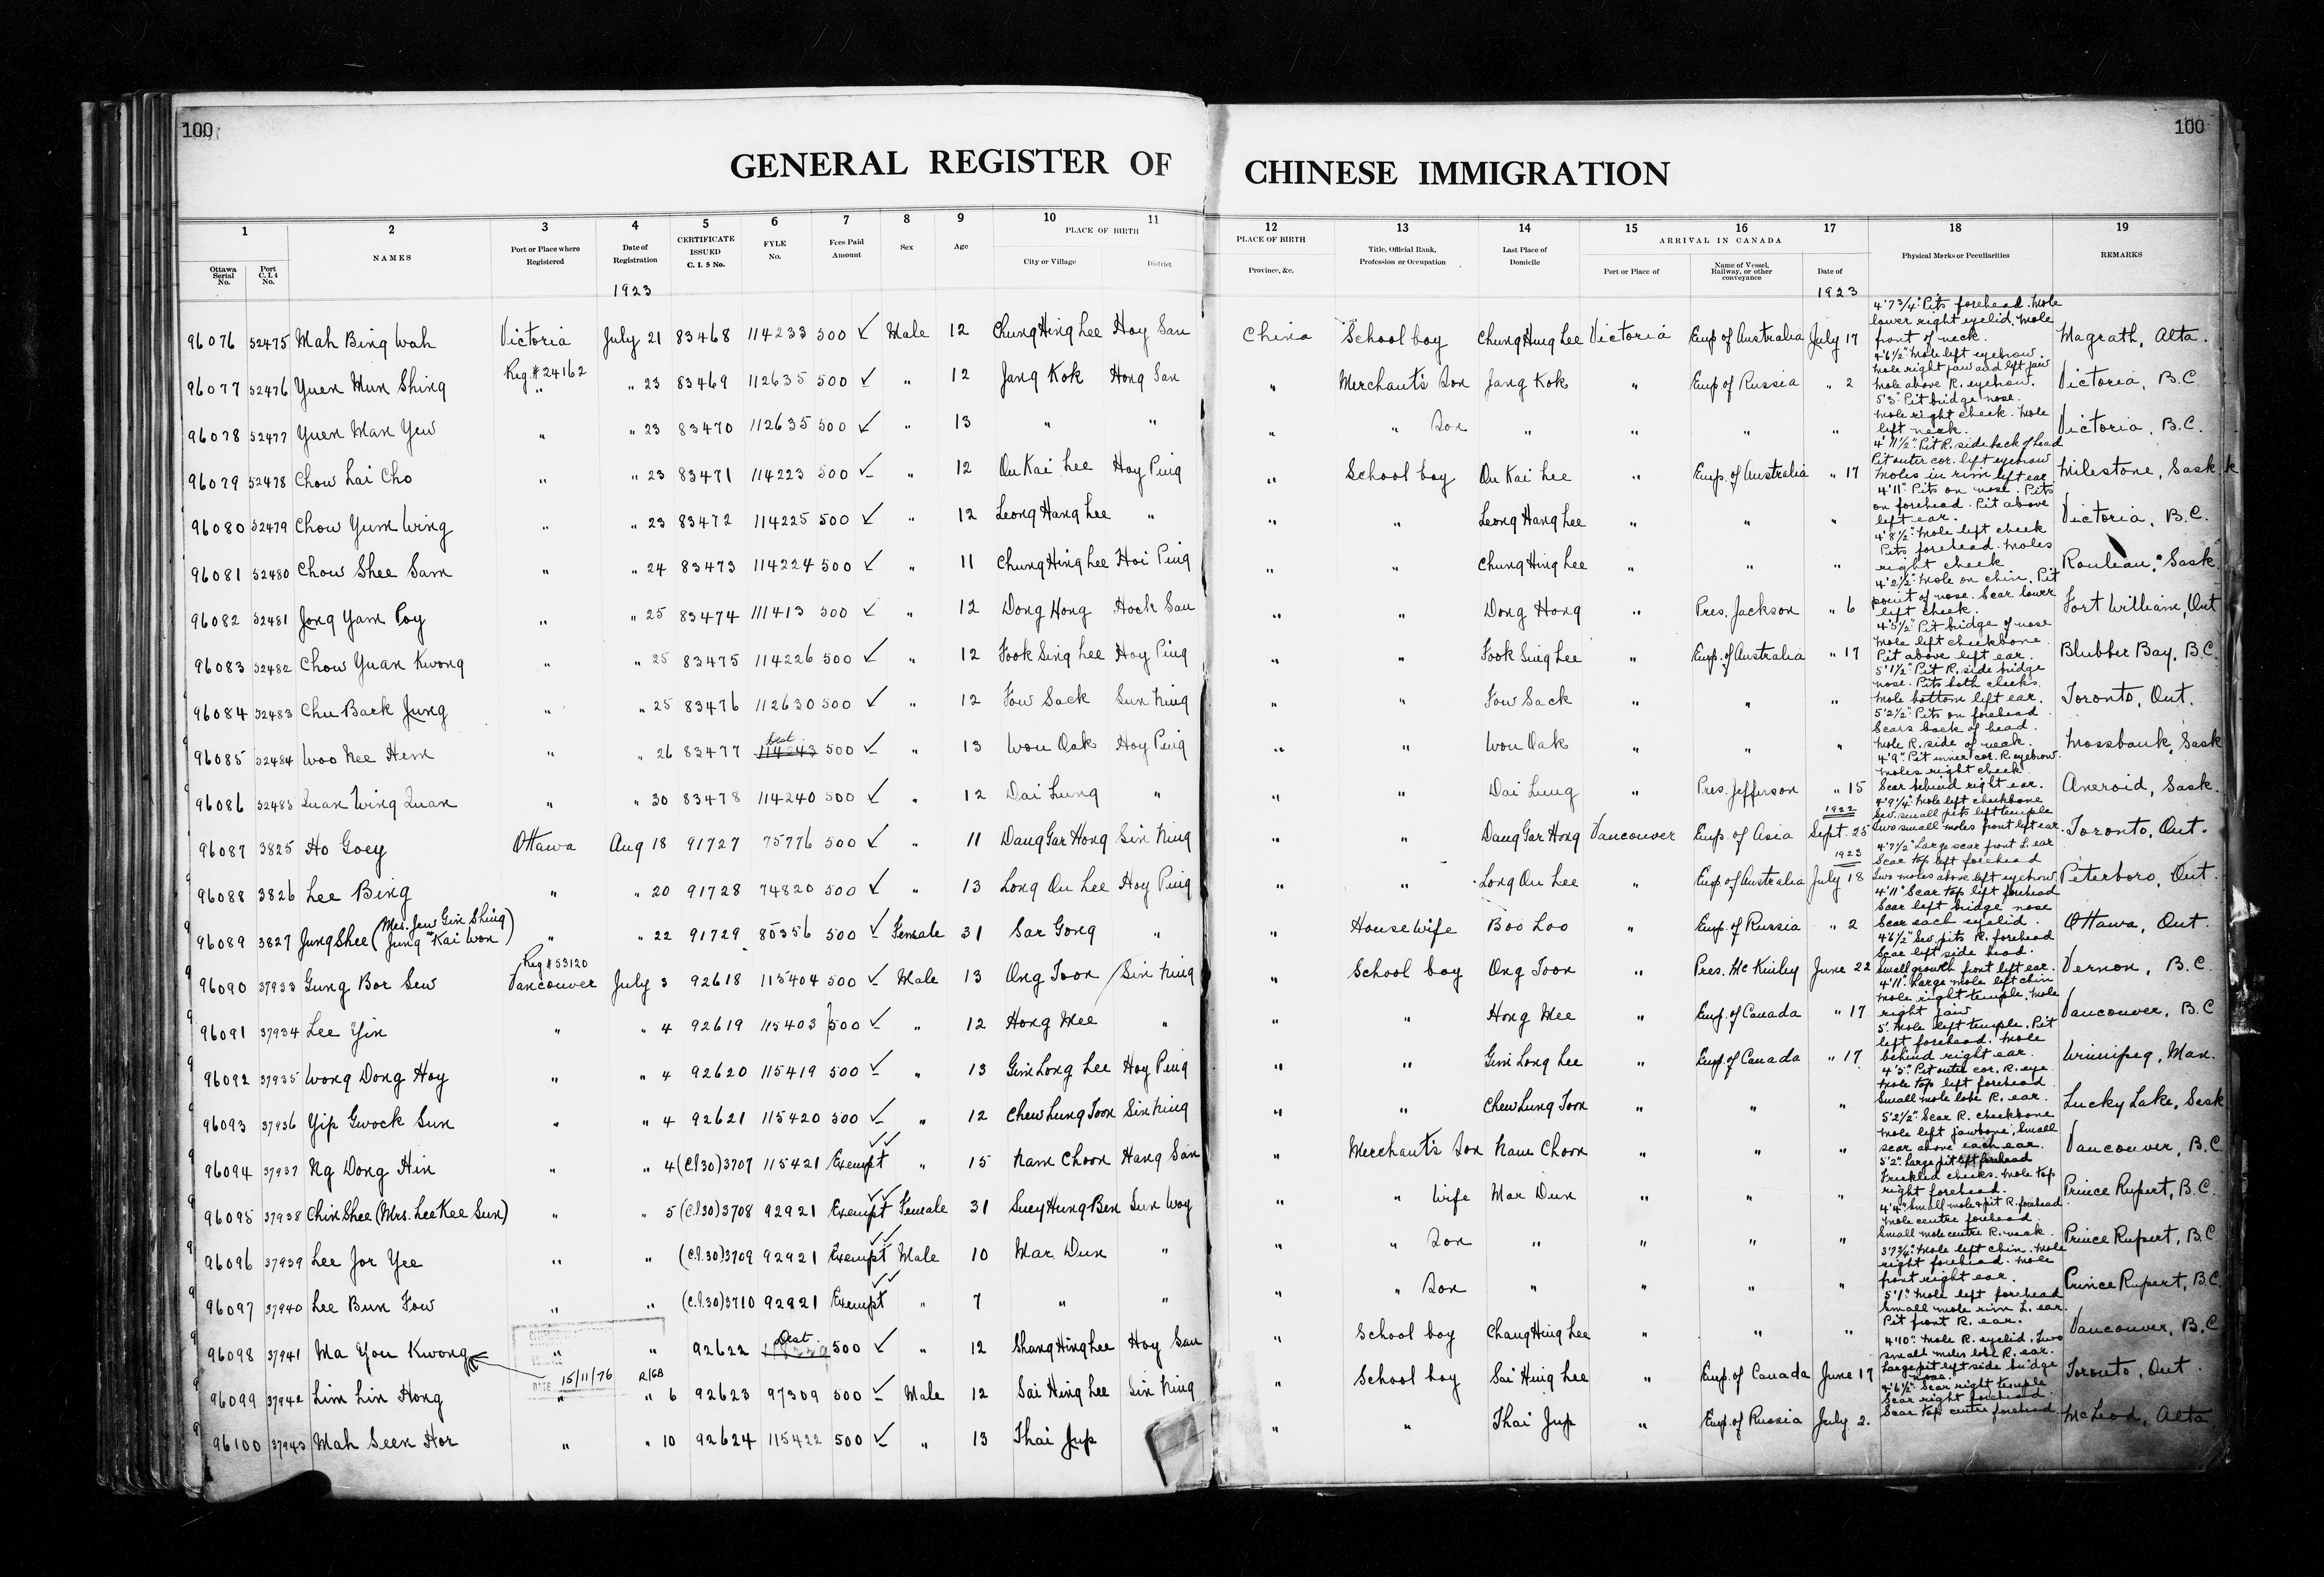 100
100
GENERAL REGISTER OF CHINESE IMMIGRATION
1 2 3 4 5 6 7 8 9 10 11 12 13 14 15 16 17 18 19
PLACE OF BIRTH
PLACE OF BIRTH
ARRIVAL IN CANADA
Ottawa Serial No.
Port C.I.4 No.
NAMES
Port or Place where Registered
Date of Registration
CERTIFICATE ISSUED C. I. 5 No.
FYLE No.
Fees Paid Amount
Sex
Age
City or Village
District
Province, &c.
Title, Official Rank, Profession or Occupation
Last Place of Domicile
Port or Place of
Name of Vessel, Railway, or other conveyance
Date of
Physical Marks or Peculiarities
REMARKS
1923
1923
96076 52475 Mah Bing Wah Victoria July 21 83468 114233 500 ✓ Male 12 Chung Hing Lee Hoy San China School boy Chung Hing Lee Victoria Emp of Australia July 17 4'7 3/4" Pits forehead. Mole lower right eyelid. Mole front of neck. Magrath, Alta.
96077 52476 Yuen Mun Shing Reg. # 24162 " " 23 83469 112635 500 ✓ " 12 Jang Kok Hong San " Merchant's Son Jang Kok " Emp of Russia " 2 4'6 1/2" Mole left eyebrow. Mole right jaw and left jaw Mole above R. eyebrow. Victoria, B.C.
96078 52477 Yuen Man Yew " " 23 83470 112635 500 ✓ " 13 " " " " Son " " " " 5'3" Pit bridge nose. Mole right cheek. Mole left neck. Victoria, B.C.
96079 52478 Chow Lai Cho " " 23 83471 114223 500 ✓ " 12 On Kai Lee Hoy Ping " School boy On Kai Lee " Emp. of Australia " 17 4'11 1/2" Pit R. side back of head Pit outer cor. left eyebrow Moles in rim left ear Milestone, Sask.
96080 52479 Chow Yum Wing " " 23 83472 114225 500 ✓ " 12 Leong Hang Lee " " " Leong Hang Lee " " " 4'11" Pits on nose. Pits on forehead. Pit above left ear. Victoria, B.C.
96081 52480 Chow Shee Sam " " 24 83473 114224 500 ✓ " 11 Chung Hing Lee Hoi Ping " " Chung Hing Lee " " " 4'8 1/2" Mole left cheek Pits forehead. Moles right cheek Rouleau, Sask.
96082 52481 Jong Yam Poy " " 25 83474 111413 500 ✓ " 12 Dong Hong Hock San " " Dong Hong " Pres. Jackson " 6 4'2 1/2" Mole on chin. Pit point of nose. Scar lower left cheek. Fort William, Ont
96083 52482 Chow Yuan Kwong " " 25 83475 114226 500 ✓ " 12 Fook Sing Lee Hoy Ping " " Fook Sing Lee " Emp. of Australia " 17 4'5 1/2" Pit bridge of nose Mole left cheekbone. Pit above left ear. Blubber Bay, B.C.
96084 52483 Chu Back Jung " " 25 83476 112630 500 ✓ " 12 Fow Sack Sun Ning " " Fow Sack " " " 5'1 1/2" Pit R. side bridge nose. Pits both cheeks. Mole bottom left ear. Toronto, Ont.
96085 52484 Woo Nee Hem " " 26 83477 Dest 114243 500 ✓ " 13 Won Oak Hoy Ping " " Won Oak " " " 5'2 1/2" Pits on forehead. Scars back of head. Mole R. side of neck. Mossbank, Sask
96086 52485 Quan Wing Quan " " 30 83478 114240 500 ✓ " 12 Dai Lung " " " Dai Lung " Pres. Jefferson " 15 4'9" Pit inner cor. R. eyebrow. Moles right cheek. Scar behind right ear. Aneroid, Sask.
96087 3825 Ho Goey Ottawa Aug 18 91727 75776 500 ✓ " 11 Dang Gar Hong Sin Ning " " Dang Gar Hong Vancouver Emp. of Asia 1922 Sept. 25 4'9 1/4" Mole left cheekbone Sev. small pits left temple Two small moles front left ear. Toronto, Ont.
96088 3826 Lee Bing " " 20 91728 74820 500 ✓ " 13 Long On Lee Hoy Ping " " Long On Lee " Emp. of Australia 1923 July 18 4'7 1/2" Large scar front L. ear Scar top left forehead Two moles above left eyebrow Peterboro, Ont.
96089 3827 Jung Shee (Mrs. Jew Gin Shing / Jung Kai Won) " " 22 91729 80356 500 ✓ Female 31 Sar Gong " " Housewife Boo Loo " Emp. of Russia " 2 4'11" Scar top left forehead Scar left bridge nose Scar each eyelid. Ottawa, Ont.
96090 37933 Gung Bor Sew Reg # 53120 Vancouver July 3 92618 115404 500 ✓ Male 13 Ong Toon Sin Ning " School boy Ong Toon " Pres. McKinley June 22 4'6 1/2" Sev. pits R. forehead Scar left side head. Small growth front left ear. Vernon, B.C.
96091 37934 Lee Yin " " 4 92619 115403 500 ✓ " 12 Hong Mee " " " Hong Mee " Emp. of Canada " 17 4'11" Large mole left chin Mole right temple. Mole right jaw Vancouver, B.C
96092 37935 Wong Dong Hoy " " 4 92620 115419 500 ✓ " 13 Gim Long Lee Hoy Ping " " Gim Long Lee " Emp. of Canada " 17 5' Mole left temple. Pit left forehead. Mole behind right ear. Winnipeg, Man.
96093 37936 Yip Gwock Sun " " 4 92621 115420 500 ✓ " 12 Chew Lung Toon Sin Ning " " Chew Lung Toon " " " 4'5" Pit outer cor. R. eye Mole top left forehead Small mole lobe R. ear. Lucky Lake, Sask
96094 37937 Ng Dong Hin " " 4 (C.I.30) 3707 115421 Exempt ✓✓ " 15 Nam Choon Hang San " Merchant's Son Nam Choon " " " 5'2 1/2" Scar R. cheekbone Mole left jawbone, small scar above each ear. Vancouver, B.C.
96095 37938 Chin Shee (Mrs. Lee Kee Sun) " " 5 (C.I.30) 3708 92921 Exempt ✓✓ Female 31 Suey Hung Ben Sun Woy " " Wife Mar Dun " " " 5'2" Large pit left forehead Freckled cheeks. Mole top right forehead. Prince Rupert, B.C.
96096 37939 Lee Jor Yee " " (C.I.30) 3709 92921 Exempt ✓✓ Male 10 Mar Dun " " " Son " " " " 4'4" Small mole & pit R. forehead Mole centre forehead Small mole centre R. neck. Prince Rupert, B.C.
96097 37940 Lee Bun Fow " " (C.I.30) 3710 92921 Exempt ✓✓ " 7 " " " " Son " " " " 3'7 3/4" Mole left chin. Mole right forehead. Mole front right ear. Prince Rupert, B.C.
96098 37941 Ma You Kwong " " 92622 Dest 500 ✓ " 12 Shang Hing Lee Hoy San " School boy Chang Hing Lee " " " 5'1" Mole left forehead Small mole rim L. ear. Pit front R. ear. Vancouver, B.C
DATE 15/11/76 R/GB
96099 37942 Lim Lin Hong " " 6 92623 97309 500 ✓ Male 12 Sai Hing Lee Sin Ning " School boy Sai Hing Lee " Emp. of Canada June 17 4'10" Mole R. eyelid. Two small moles lobe R. ear. Large pit left side bridge nose. Toronto, Ont.
96100 37943 Mah Seen Hor " " 10 92624 115422 500 ✓ " 13 Thai Jup " " Thai Jup " Emp. of Russia July 2. 4'6 1/2" Scar right temple. Scar right forehead. Scar top centre forehead. McLeod, Alta.